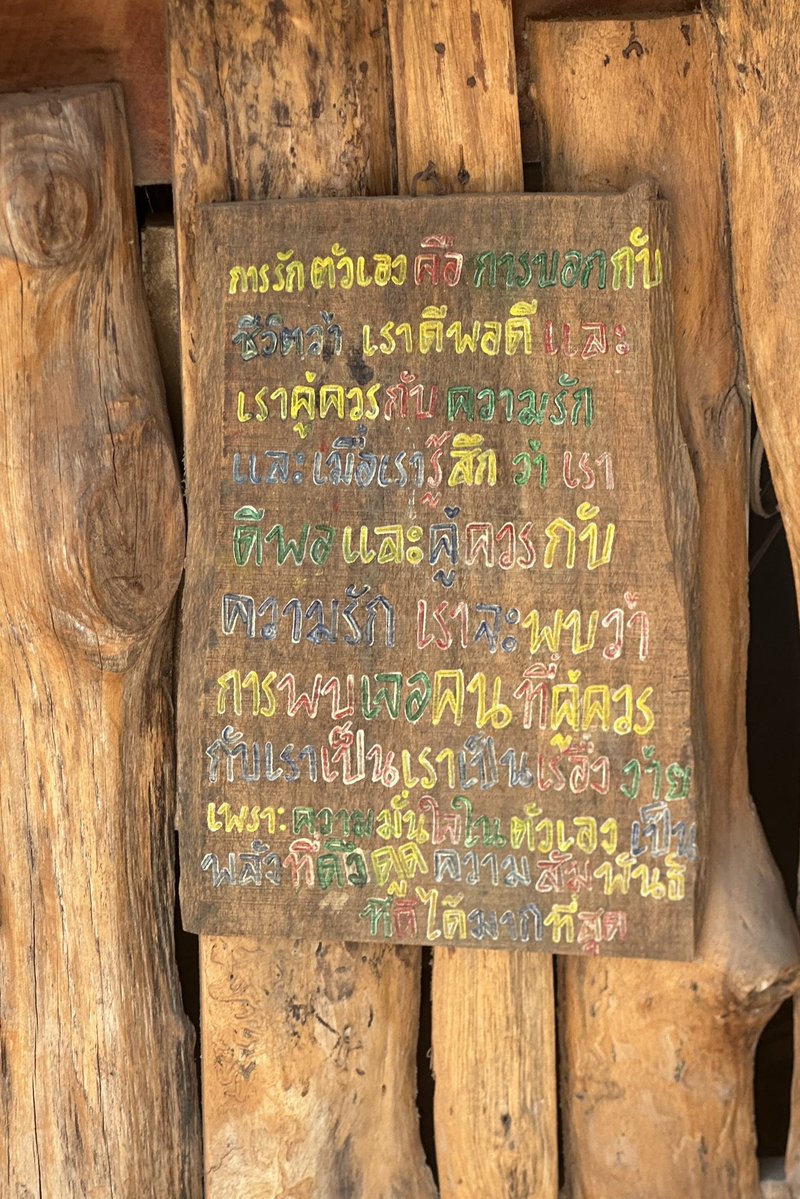 การรักตัวเอง คือ การบอกกับ
ชีวิตว่า เราดีพอดี และ
เราคู่ควรกับ ความรัก
และเมื่อเรารู้สึก ว่า เรา
ดีพอ และคู่ควรกับ
ความรัก เราจะพบว่า
การพบเจอคน ที่คู่ควร
กับเราเป็นเราเป็นเรื่อง ง่าย
เพราะความมั่นใจในตัวเอง เป็น
พลังที่ดึงดูดความสัมพันธ์
ที่ดีได้มากที่สุด